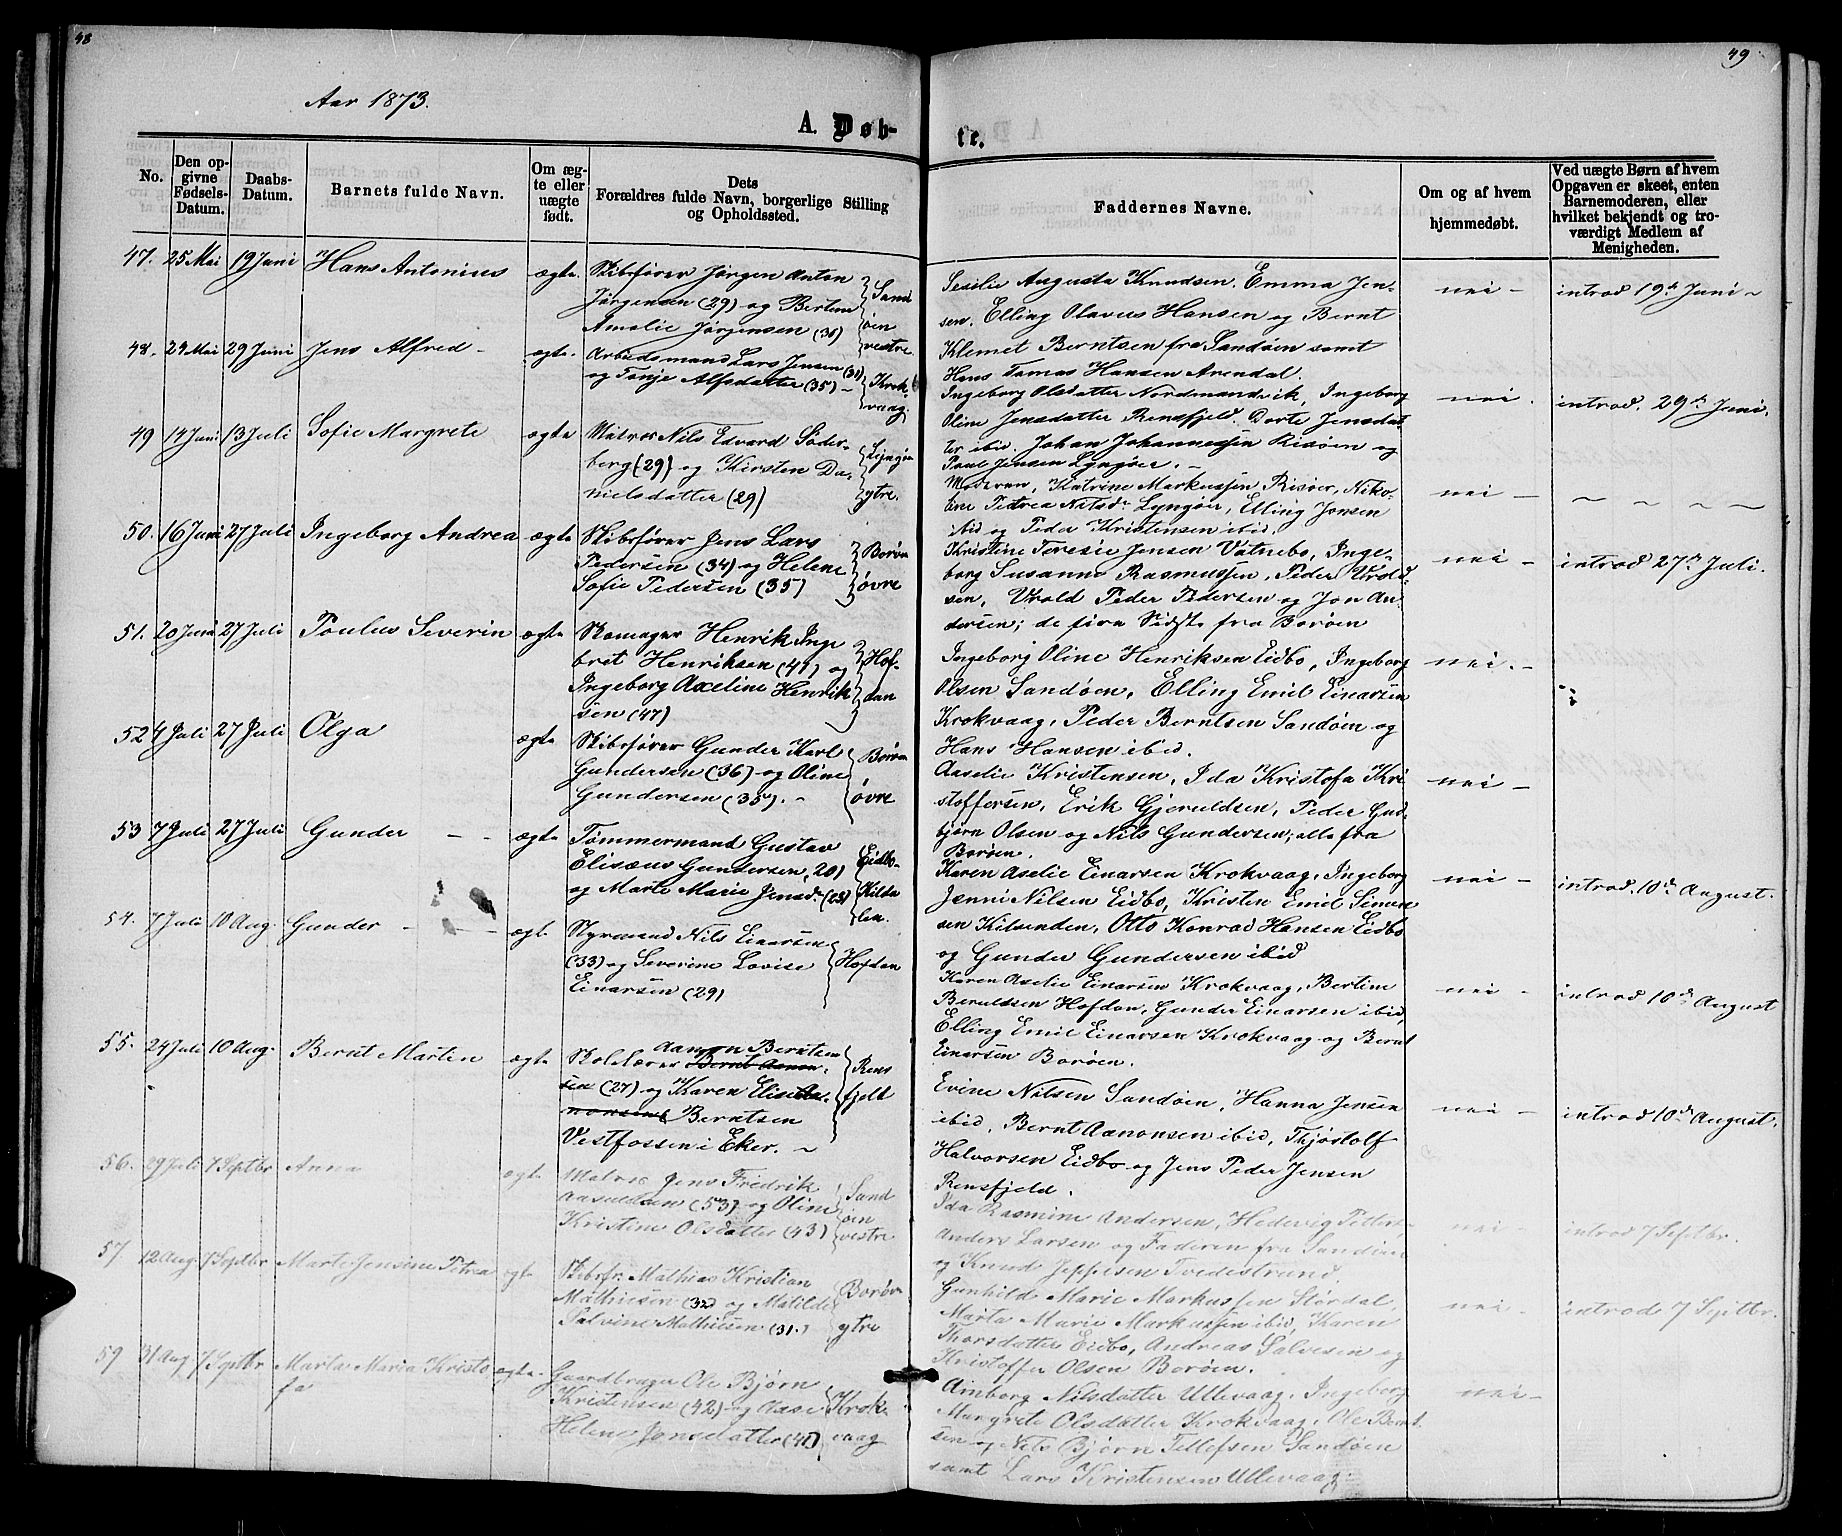 48
49
Aar 1873.
A. Døb-
te.
No.
Den op-
givne
Fødsels-
Datum.
Daabs-
Datum.
Barnets fulde Navn.
Om æg-
te eller
uægte
født.
Dets
Forældres fulde Navn, borgerlige Stilling
og Opholdssted.
Faddernes Navne.
Om og af hvem
hjemmedøbt.
Ved uægte Børn af hvem
Opgaven er skeet, enten
Barnemoderen, eller
hvilket bekjendt og tro-
værdigt Medlem af
Menigheden.
47. 25 Mai 19 Juni Hans Antonius ægte.
Skibsfører Jørgen Anton
Jørgensen (29) og Bertine
Amalie Jørgensen (36)
Sand
øen
vestre.
Sesilie Augusta Knudsen. Emma Jen-
sen. Elling Olavus Hansen og Bernt
Klemet Berntsen fra Sandøen samt
Hans Tomas Hansen Arendal.
nei -
introd 19de Juni -
48. 29 Mai 29 Juni Jens Alfred - ægte.
Arbeidsmand Lars Jensen (31)
og Tonje Alfsdatter (35) -
Krok
vaag.
Ingeborg Olsdatter Nordmandvik, Ingeborg
Oline Jensdatter Rensfjeld. Dorte Jensdat-
ter ibid. Johan Johannessen Risøen og
Paul Jensen Lyngøer. -
nei.
introd. 29de Juni.
49 14 Juni 13 Juli Sofie Margrete ægte
Matros Nils Edvard Søder-
berg (29) og Kirsten Da-
nielsdatter (29)
Lyngøer
ytre.
Moderen, Katrine Markussen Risøer, Niko-
line Petrea Nilsdr Lyngøer, Elling Jensen
ibid og Peder Kristensen ibid.
nei -
50. 16 Juni 27 Juli Ingeborg Andrea ægte
Skibsfører Jens Lars
Pedersen (34) og Helene
Sofie Pedersen (35)
Borøen
øvre
Kristine Teresie Jensen Vatnebo, Inge-
borg Susanne Rasmussen, Peder Vrold-
sen, Vrold Peder Pedersen og Jon An-
dersen; de fire Sidste fra Borøen
nei -
introd 27de Juli.
51. 20 Juni 27 Juli Poulus Severin ægte
Skomager Henrik Inge
bret Henriksen (41) og
Ingeborg Axeline Henrik
sen (47)
Hof-
dan
Ingeborg Oline Henriksen Eidbo, Ingeborg
Olsen Sandøen, Elling Emil Einarsen
Krokvaag, Peder Berntsen Sandøen og
Hans Hansen ibid.
nei. -
52 4 Juli 27 Juli Olga ægte
Skibsfører Gunder Karl
Gundersen (36) og Oline
Gundersen (35). -
Borøen
øvre
Aaselie Kristensen, Ida Kristofa Kri
stoffersen, Erik Gjeruldsen, Peder Gud-
bjørn Olsen og Nils Gundersen; alle fra
Borøen.
nei -
53 7 Juli 27 Juli Gunder - - ægte
Tømmermand Gustav
Elisæus Gundersen, 20)
og Marte Marie Jensdr (23)
Eidbo-
Kilda
len.
Karen Aselie Einarsen Krokvaag, Ingeborg
Jenni Nilsen Eidbo, Kristen Emil Simon
sen Kilsenden, Otto Konrad Hansen Eidbo
og Gunder Gundersen ibid
nei -
introd. 10de August.
54. 7 Juli 10 Aug. Gunder - - ægt.
Styrmand Nils Einarsen
(33) og Severine Lovise
Einarsen (29)
Hofdan
Karen Aselie Einarsen Krokvaag, Bertine
Beruldsen Hofdan, Gunder Einarsen ibid,
Elling Emil Einarsen Krokvaag og Bernt
Einarsen Borøen.
nei -
introd 10de August
55. 24 Juli 10 Aug. Bernt Martin ægte
Aanon Berntsen
Skolelærer Bernt Aanon-
sen (27) og Karen Elise Aa-
nonsen Berntsen
Vestfossen i Eker. -
Rens
fjeld
Evine Nilsen Sandøen, Hanna Jensen
ibid, Bernt Aanonsen ibid, Thjøstolf
Halvorsen Eidbo og Jens Peder Jensen
Rensfjeld.
nei -
introd 10de August.
56. 29 Juli 7 Septbr Anna ægt.
Matros Jens Fredrik
Aasuldsen (53) og Oline
Kristine Olsdatter (43)
Sand
øen
vestre
Ida Rasmine Andersen, Hedevig Petters,
Anders Larsen og Faderen fra Sandøen
og Knud Jeppesen Tvedestrand.
nei
introd 7 Septbr.
57. 12 Aug. 7 Septbr Marte Jensine Petrea ægte
Skibsfr. Mathias Kristian
Mathiesen (32) og Matilde
Salvine Mathiesen (31.)
Borøen
ytre
Gunhild Marie Markussen Størdal,
Marta Marie Markussen ibid, Karen
Thorsdatter Eidbo, Andreas Salvesen og
Kristoffer Olsen Borøen.
nei -
introd 7 Septbr.
59 31 Aug. 7 Septbr Marta Maria Kristo ægte.
fa
Gaardbruger Ole Bjørn
Kristensen (42) og Aase
Helene Jensdatter (41)
Krok-
vaag
Ainborg Nilsdatter Ullevaag, Ingeborg
Margrete Olsdatter Krokvaag, Ole Bernt
sen og Nils Bjørn Tellefsen Sandøen
samt Lars Kristensen Ullevaag.
nei -